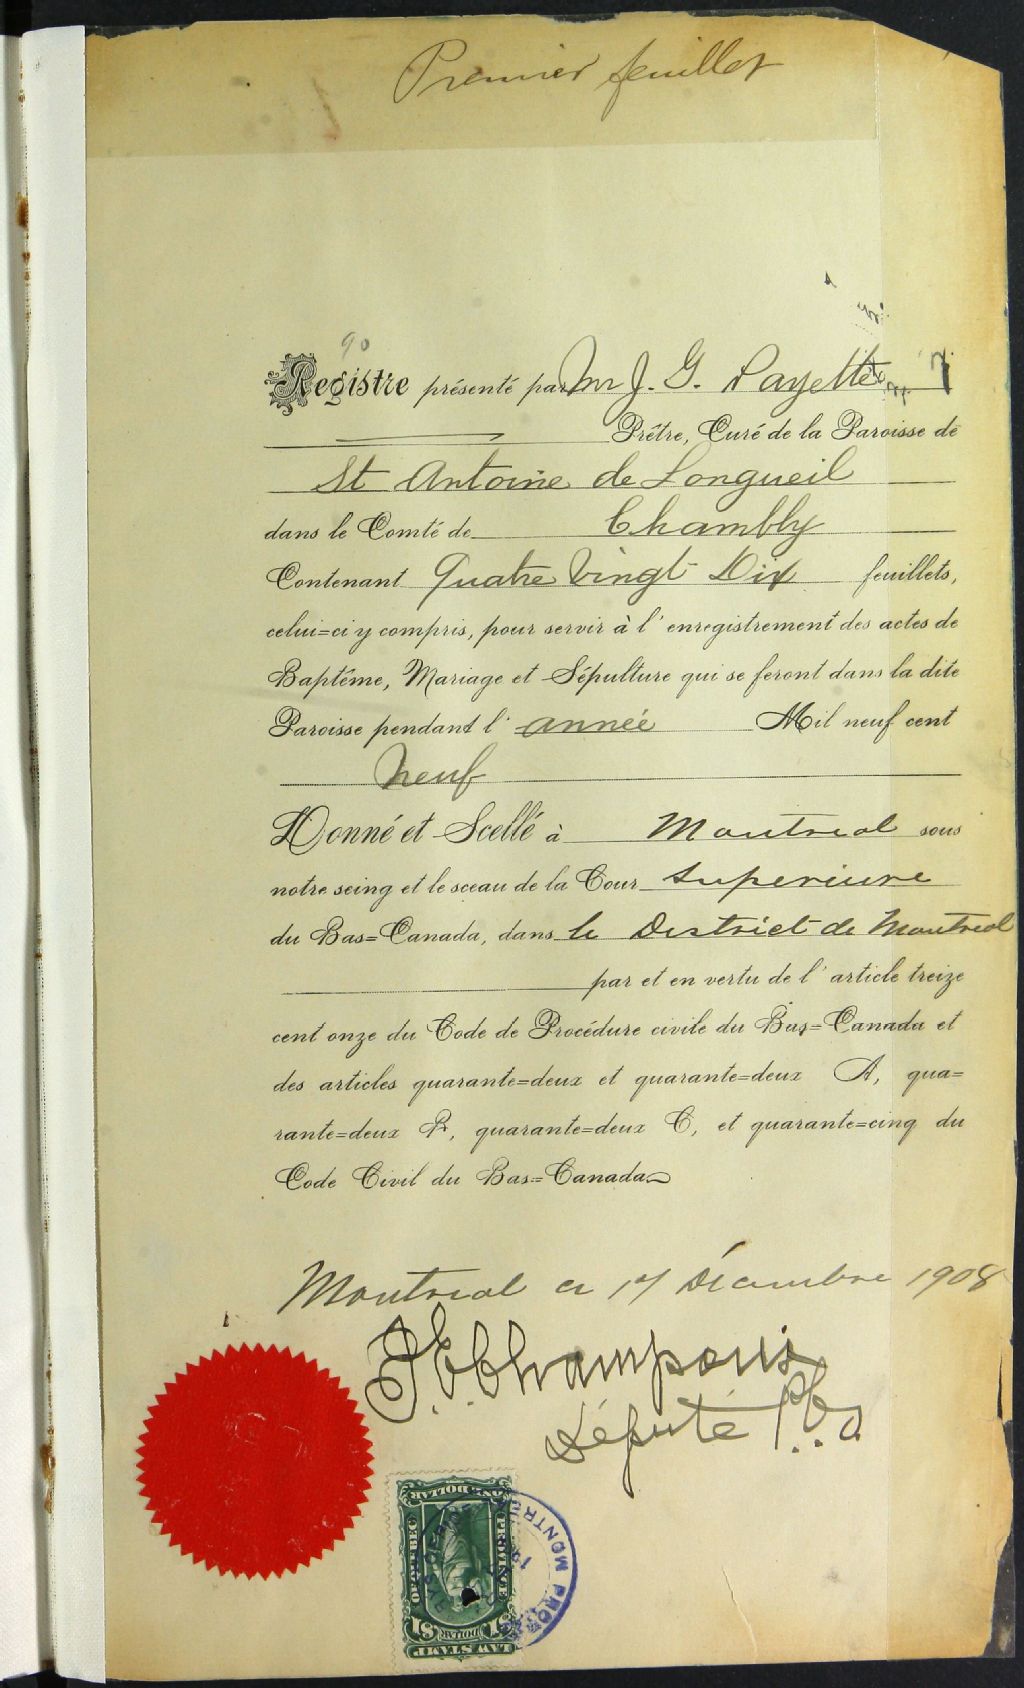 Premier feuillet
90
Registre présenté par Mr J. G. Payette
Prêtre, Curé de la Paroisse de
St Antoine de Longueil
dans le Comté de Chambly
Contenant Quatre Vingt Dix feuillets,
celui=ci y compris, pour servir à l'enregistrement des actes de
Baptême, Mariage et Sépulture qui se feront dans la dite
Paroisse pendant l'année Mil neuf cent
Neuf
Donné et Scellé à Montreal sous
notre seing et le sceau de la Cour Superieure
du Bas=Canada, dans le District de Montreal
par et en vertu de l'article treize
cent onze du Code de Procédure civile du Bas=Canada et
des articles quarante=deux et quarante=deux A, qua=
rante=deux B, quarante=deux C, et quarante=cinq du
Code Civil du Bas=Canada
Montreal ce 17 Décembre 1908
Député P.C.S.
ONE DOLLAR
PROVINCE
OF QUEBEC
$1 DOLLAR $1
LAW STAMP
MONTREAL